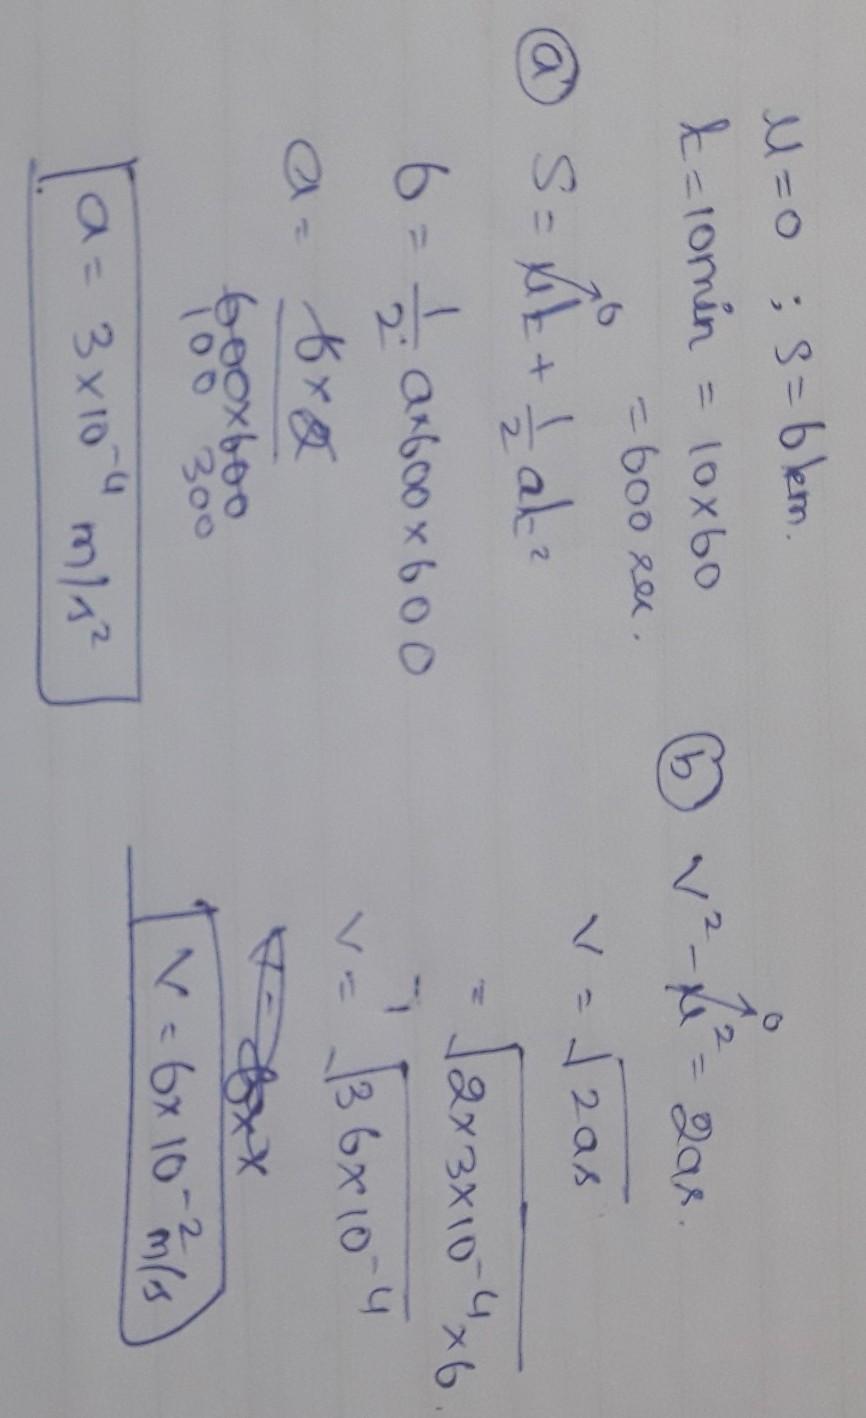 u = 0 ; S = 6 km.
t = 10 min = 10 × 60
= 600 sec.
ⓐ S = ut → 0 + 1/2 at²
6 = 1/2 a × 600 × 600
a = 6 × 2 / 600 × 600
100 300
a = 3 × 10⁻⁴ m/s²
ⓑ v² - u² → 0 = 2as.
v = √2as
= √2 × 3 × 10⁻⁴ × 6.
v = √36 × 10⁻⁴
v = 6 × 10⁻² m/s